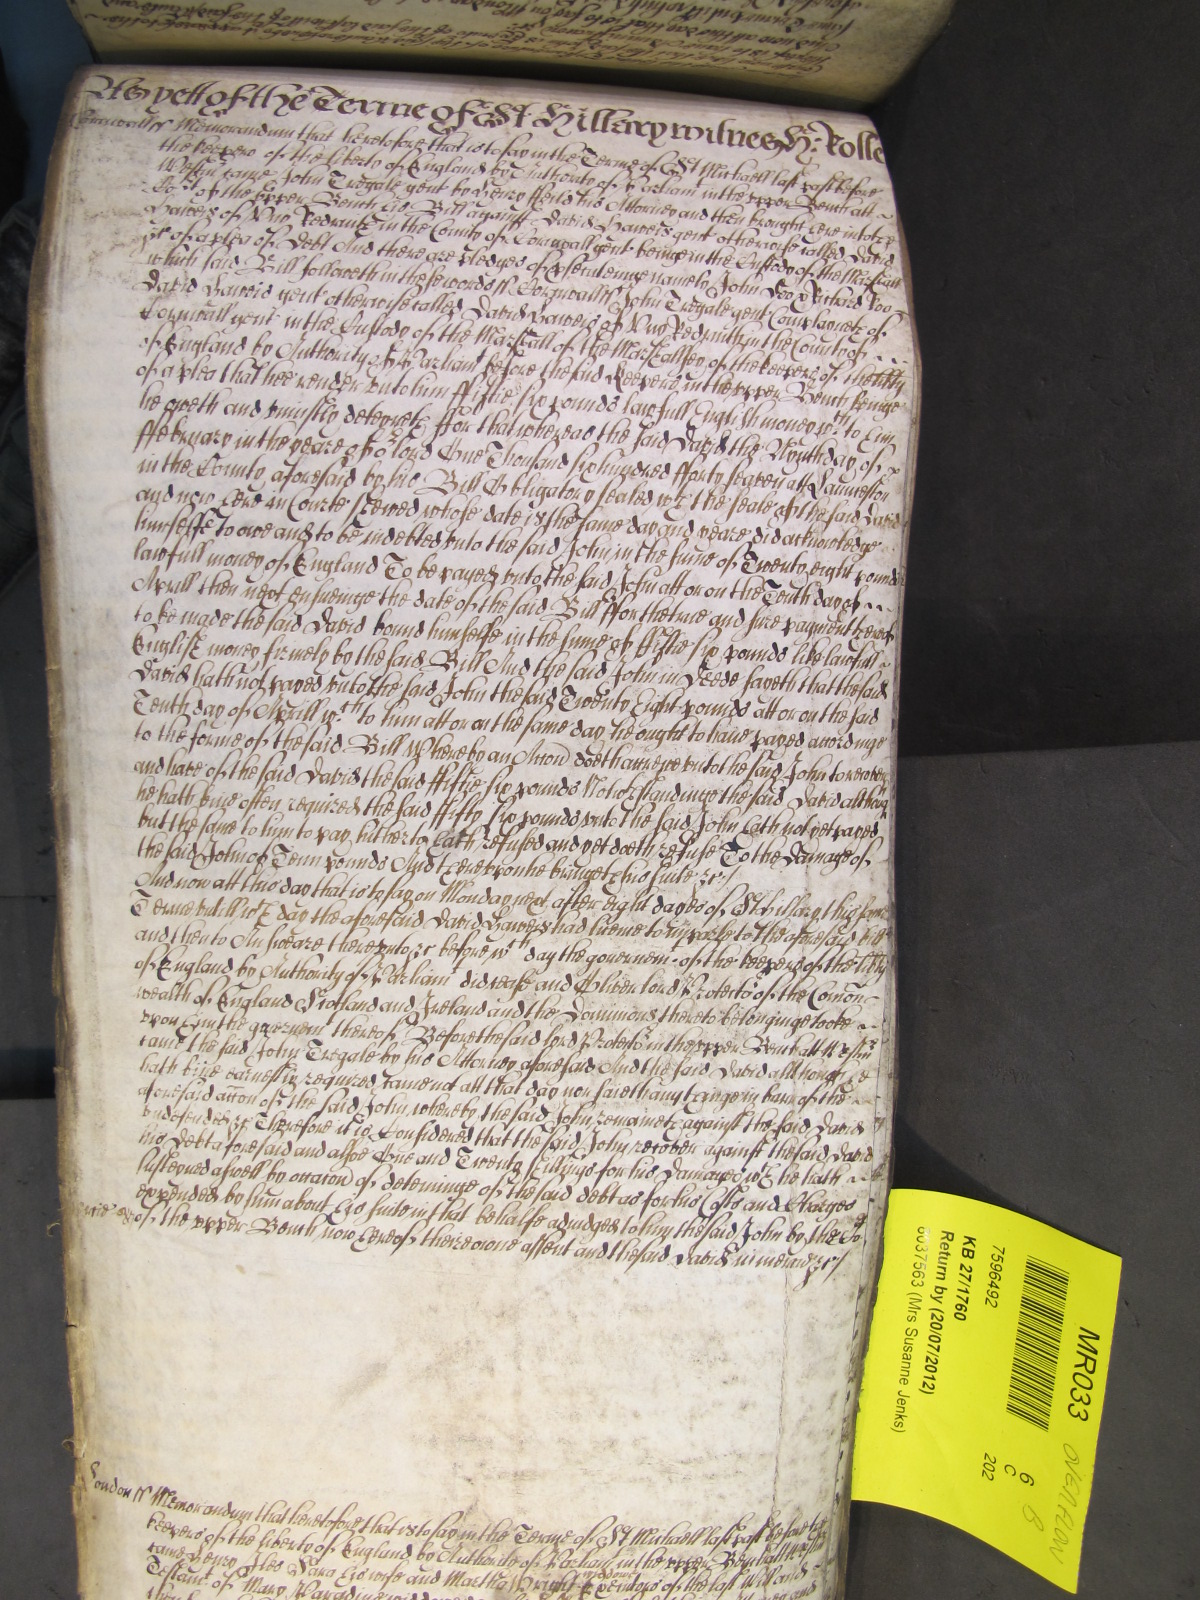 As yett of the Terme of St Hillary witnes H: Rolle
Cornwall ss Memorandum that heretofore that is to say in the Terme of St Michaell last past before
the keepers of the liberty of England by Authority of Parliamt in the upper Bench att
Westmr came John Tregale gent by Henry his Attorney and then brought here into the
Cot of the upper Bench his Bill against David Hawes gent otherwise called David
Hawes of Uny Redruth in the County of Cornwall gent being in the Custody of the Marshall
&c of a plea of Debt And there are pledges of prosecutinge namely John Doo & Richard Roo
which said Bill followeth in these words ss Cornwall ss John Tregale gent Complayneth of
David Hawes gent otherwise called David Hawes of Uny Redruth in the County of
Cornwall gent in the Custody of the Marshall of the Marshalsey of the keepers of the liberty
of England by Authority of Parliamt before the said keepers in the upper Bench beinge
of a plea that hee render unto him fiftie six pounds lawfull English money wch to him
he oweth and uniustly deteyneth ffor that whereas the said David the Nynth day of
ffebruary in the yeare of or Lord One Thousand six hundred fforty seaven att Launceston
in the County aforesaid by his Bill Obligatory sealed wth the seale of the said David
and now here in Courte shewed whose date is the same day and yeare did acknowledge
himselfe to owe and to be indebted unto the said John in the sume of Twenty eight pounds
lawfull money of England To be payed unto the said John att or on the Tenth day of
Aprill then next ensueinge the date of the said Bill ffor the true and sure payment thereof
to be made the said David bound himselfe in the sume of fiftie six pounds like lawfull
English money firmely by the said Bill And the said John in deede sayeth that the said
David hath not payed unto the said John the said Twenty Eight pounds att or on the said
Tenth day of Aprill wch to him att or on the same day he ought to have payed accordinge
to the forme of the said Bill Whereby an Accon doeth accrewe unto the said John to recover
and have of the said David the said ffiftie six pounds Notwthstandinge the said David although
he hath bine often required the said fifty six pounds unto the said John hath not yet payed
but the same to him to pay hitherto hath refused and yet doeth refuse To the damage of
the said John of Tenn pounds And thereupon he bringeth his suite &c /
And now att this day that is to say on Monday next after eight dayes of St Hillary this same
Terme untill wch day the aforesaid David Hawes had lycence to imparle to the aforesaid bill
and then to Answeare thereunto &c before wch day the governemt of the keepers of the liberty
of England by Authority of Parliamt did cease and Oliver lord Protector of the Common
wealth of England Scotland and Ireland and the Dominions thereto belonginge tooke
upon him the governemt thereof Before the said lord Protector in the upper Bench att Westmr
came the said John Tregale by his Attorney aforesaid And the said David although he
hath bine earnestly required came not att that day nor saieth any thinge in barr of the
aforesaid accon of the said John whereby the said John remaineth against the said David
undefended &c Therefore it is Considered that the said John recover against the said David
his Debt aforesaid and alsoe One and Twenty shillings for his Damages wch he hath
susteyned aswell by occasion of deteininge of the said debt as for his Costs and Charges
expended by him about his suite in that behalfe adiudged to him the said John by the Cot
of the upper Bench now here of theire owne assent and the said David in mercy &c /
London ss Memorandum that heretofore that is to say in the Terme of St Michaell last past before the
keepers of the liberty of England by Authority of Parliamt in the upper Bench att Westmr
came Henry Iles Sara his wife and Martha Wright Executors of the last Will and
Testamt of Mary
MR033
OVERFLOW
B
6
C
202
7596492
KB 27/1760
Return by (20/07/2012)
6037563 (Mrs Susanne Jenks)